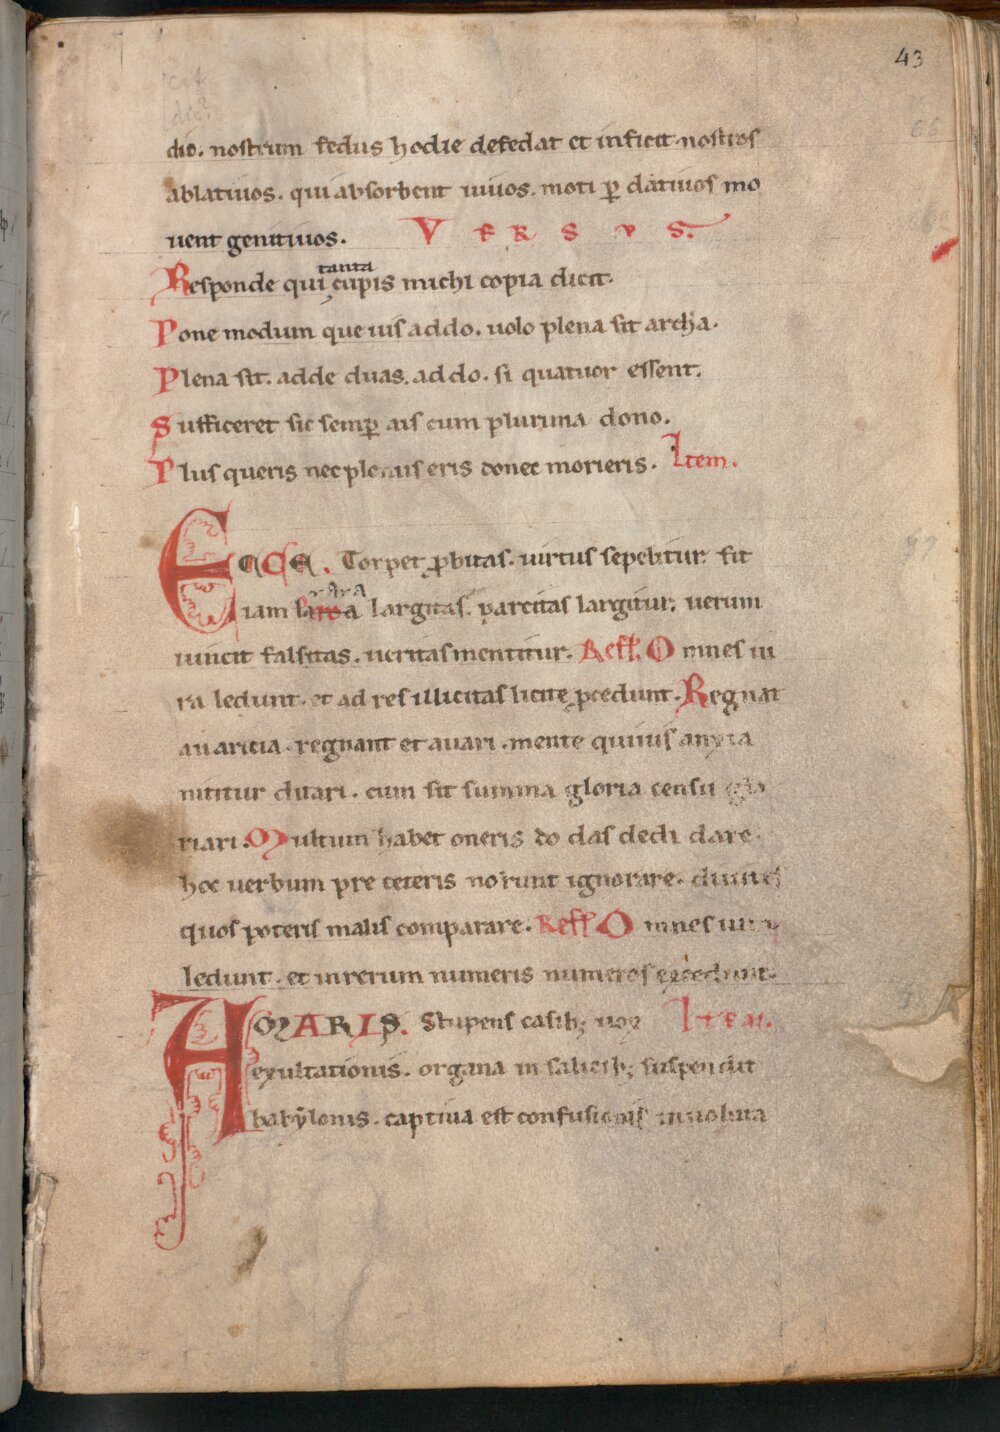 43
dio. nostrum fedus hodie defedat et inficit nostros
ablatiuos. qui absorbent uiuos. moti ꝑ datiuos mo
uent genitiuos. VERSVS.
tanta
Responde qui cupis michi copia dicit.
Pone modum que uis addo. uolo plena sit archa.
Plena sit. adde duas. addo. si quatuor essent.
Sufficeret sic semꝑ ais cum plurima dono.
Plus queris nec plenus eris donec morieris. Item.
ECCE. Torpet ꝓbitas. uirtus sepelitur. fit
rara
iam largitas. parcitas largitur. uerum
uincit falsitas. ueritas mentitur. Reff. Omnes iu
ra ledunt. et ad res illicitas licite ꝓcedunt. Regnat
auaricia. regnant et auari. mente quiuis anxia
nititur ditari. cum sit summa gloria censu glo
riari. Multum habet oneris do das dedi dare.
hoc uerbum pre ceteris norunt ignorare. diuites
quos poteris malis comparare. Reff. Omnes iura
ledunt. et in rerum numeris numeros excedunt.
AMARIS. Stupens casib; uox Item.
exultationis. organa in salicib; suspendit
babẏlonis. captiua est confusionis inuoluta